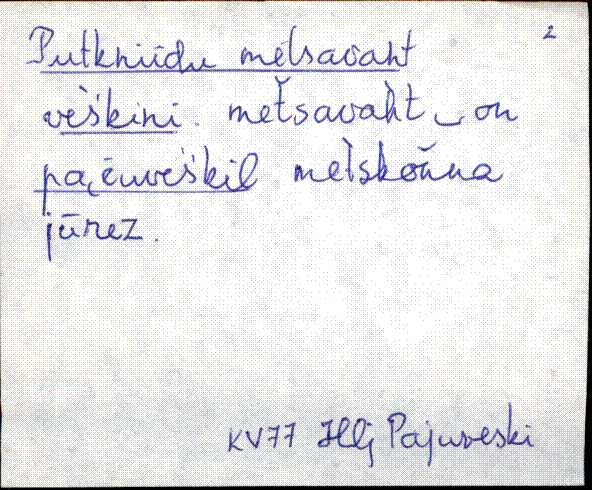 2
Putkniidu metsavaht
veškini. metsavaht‿on
pajuveškil metskonna
jūrez.
KV77 Hlj Pajuveski